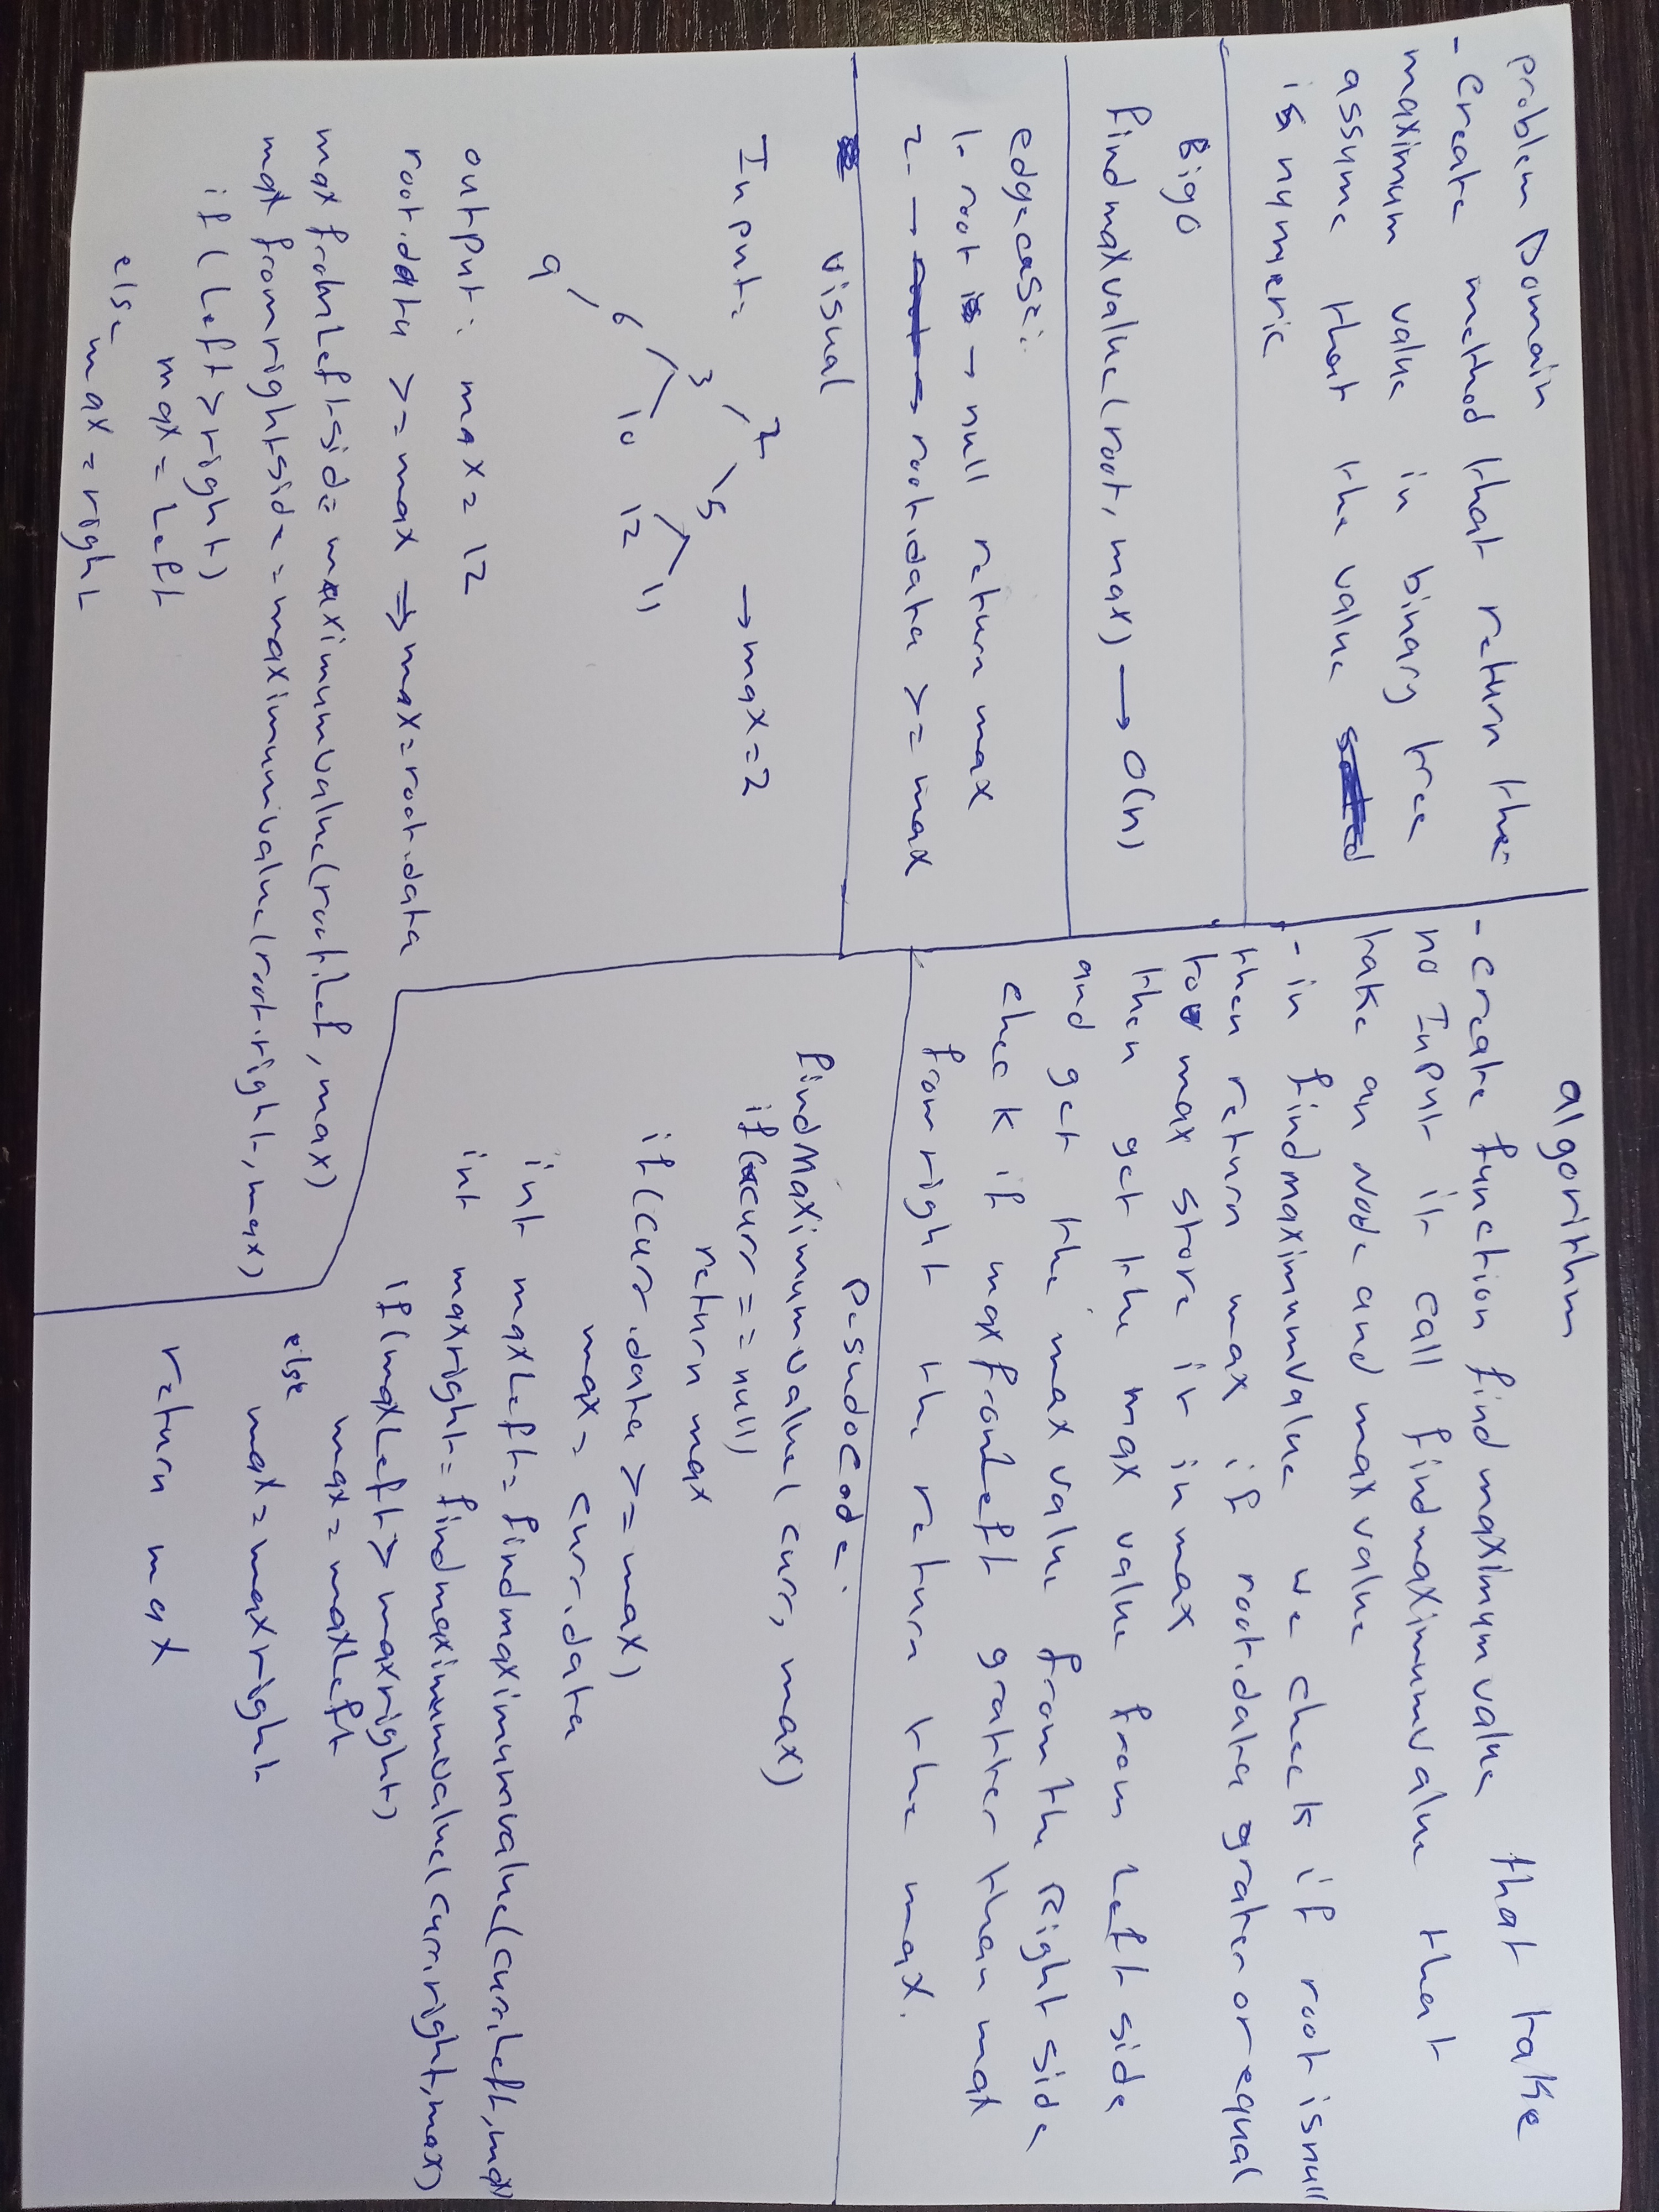 problem Domain
- Create method that return the
maximum value in binary tree
assume that the value
is numeric
Big O
findmaxvalue(root, max) → O(n)
edgecase:
1- root → null return max
2- → root.data >= max
visual
Input: 2 → max=2
3 5
6 10 12 11
9
output: max = 12
root.data >= max ⇒ max=root.data
max from Left side = maximumvalue(root.Lef, max)
max from right side = maximumvalue(root.right, max)
if (Left > right)
max = Left
else
max = right
algorithm
- create function find maximum value that take
no Input it call findmaximumvalue that
take an Node and max value
- in findmaximumValue we check if root is null
then return max if root.data grater or equal
to max store it in max
then get the max value from Left side
and get the max value from the Right side
check if max from Left gratter than max
from right the return the max.
Pesudocode:
findMaximumvalue( curr, max)
if(curr == null)
return max
if(curr.data >= max)
max = curr.data
int maxLeft = findmaximumvalue(curr.Left, max)
int maxright = findmaximumvalue(curr.right, max)
if(maxLeft > maxright)
max = maxLeft
else
max = maxright
return max